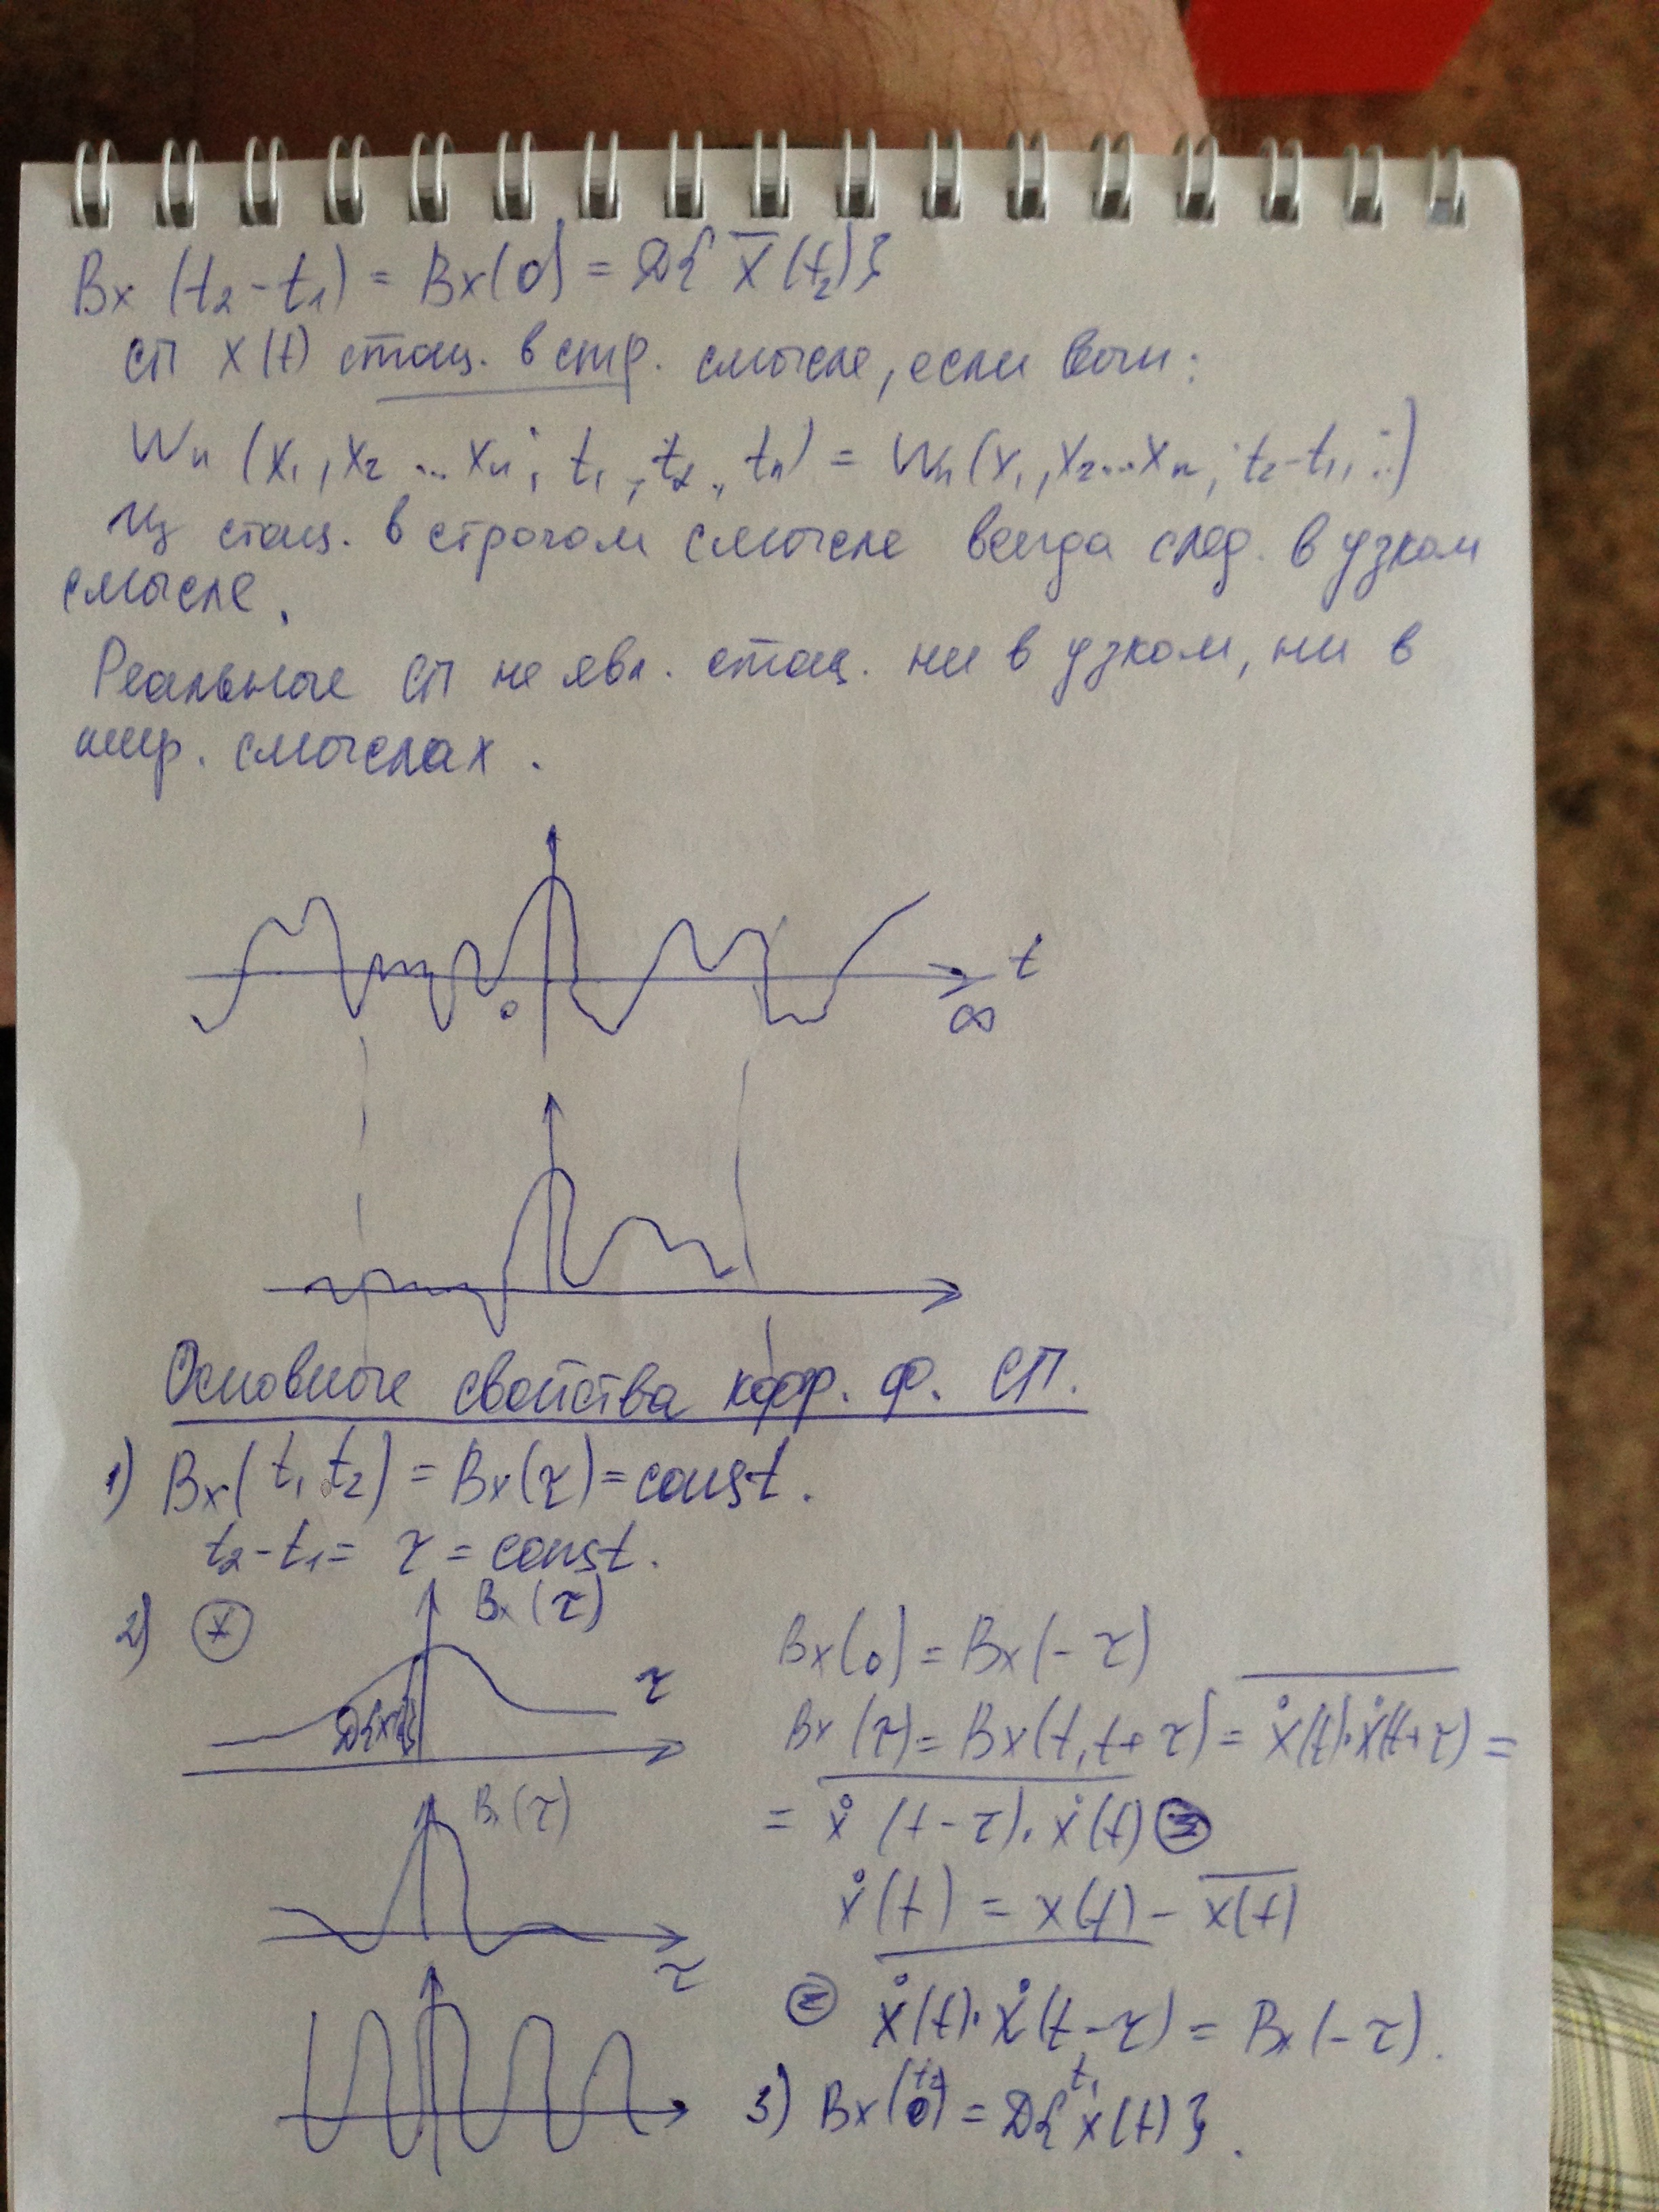 Bx (t₂-t₁) = Bx(0) = D{ x̅(t₂)}
СП x(t) стац. в стр. смысле, если вып:
Wn (x₁, x₂ ... xn; t₁, t₂, tn) = Wn(x₁, x₂...xn, t₂-t₁, ...)
Из стац. в строгом смысле всегда след. в узком
смысле.
Реальные СП не явл. стац. ни в узком, ни в
шир. смыслах.
t
0
∞
Основные свойства корр. ф. СП.
1) Bx(t₁, t₂) = Bx(τ) = const.
t₂-t₁ = τ = const.
2) * Bx(τ)
τ
D{x(t)}
Bx(0) = Bx(-τ)
Bx(τ) = Bx(t, t+τ) = x̊(t)·x̊(t+τ) =
= x̊(t-τ)·x̊(t) =
x̊(t) = x(t) - x̅(̅t̅)̅
= x̊(t)·x̊(t-τ) = Bx(-τ).
B(τ)
τ
3) Bx(0) = D{x(t)}.